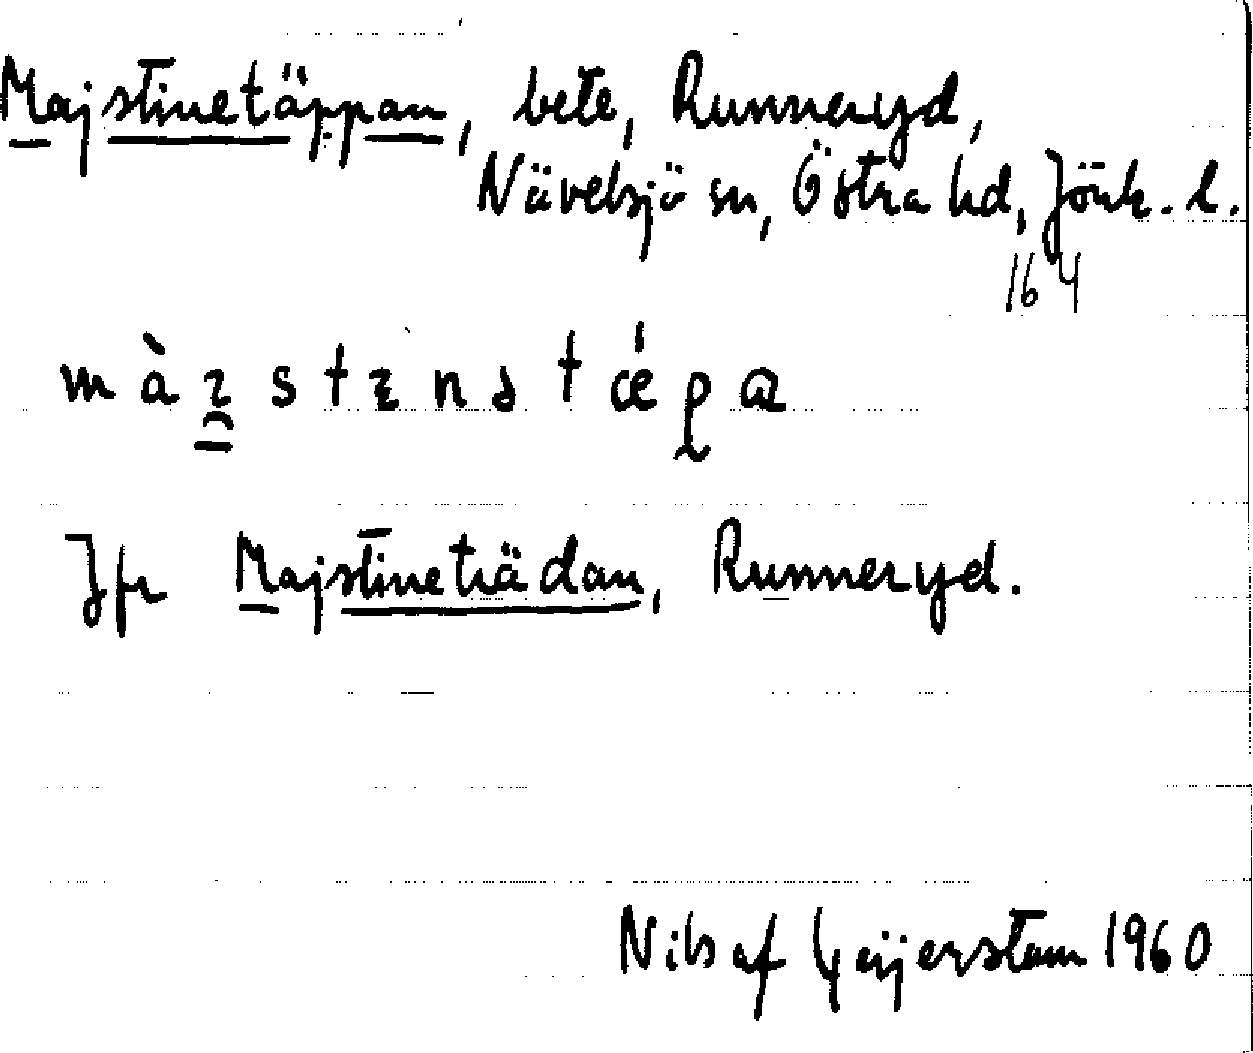 Majstinetäppan, bete, Runneryd,
Nävelsjö sn, Östra hd, Jönk. l.
164
Jfr Majstineträdan, Runneryd.
Nils af Geijerstam 1960